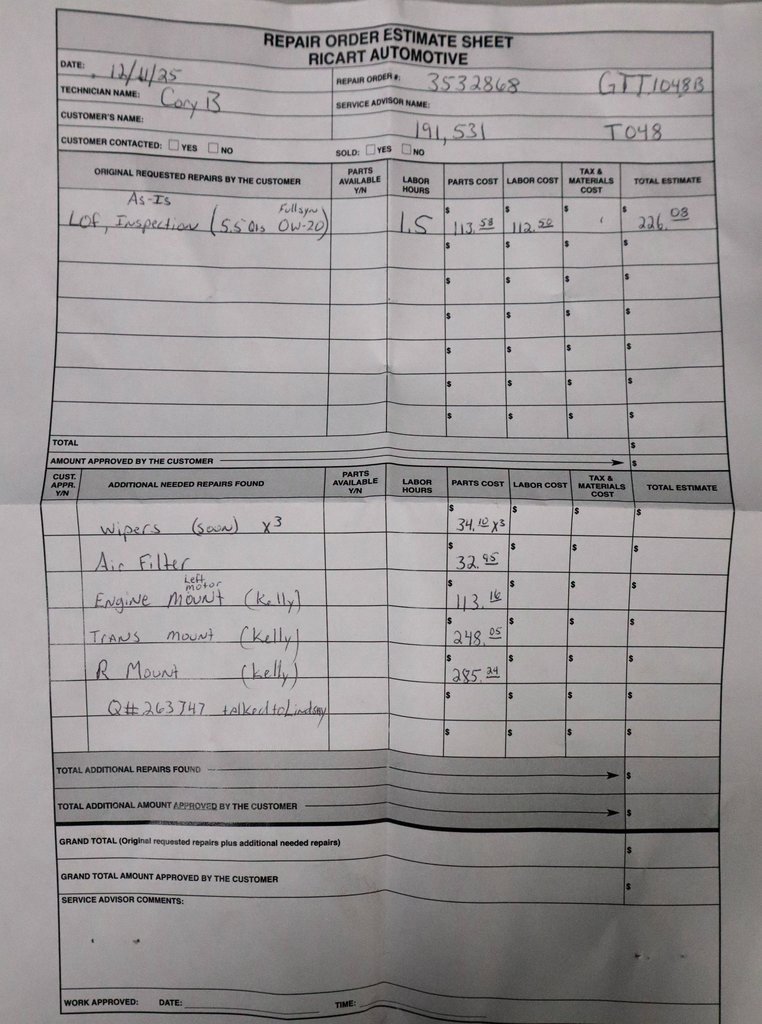 REPAIR ORDER ESTIMATE SHEET
RICART AUTOMOTIVE
DATE: 12/11/25
REPAIR ORDER #: 3532868 GTT1048B
TECHNICIAN NAME: Cory B
SERVICE ADVISOR NAME:
CUSTOMER'S NAME:
191,531 T048
CUSTOMER CONTACTED: YES NO
SOLD: YES NO
ORIGINAL REQUESTED REPAIRS BY THE CUSTOMER PARTS AVAILABLE Y/N LABOR HOURS PARTS COST LABOR COST TAX & MATERIALS COST TOTAL ESTIMATE
As-Is
LOF, Inspection (5.5 Qts Full syn 0W-20) 1.5 $ 113.58 $ 112.50 $ $ 226.08
$ $ $ $
$ $ $ $
$ $ $ $
$ $ $ $
$ $ $ $
$ $ $ $
TOTAL $
AMOUNT APPROVED BY THE CUSTOMER $
CUST. APPR. Y/N ADDITIONAL NEEDED REPAIRS FOUND PARTS AVAILABLE Y/N LABOR HOURS PARTS COST LABOR COST TAX & MATERIALS COST TOTAL ESTIMATE
Wipers (soon) x3 $ 34.10 x3 $ $ $
Air Filter $ 32.95 $ $ $
Left motor
Engine Mount (Kelly) $ 113.16 $ $ $
Trans mount (Kelly) $ 248.05 $ $ $
R Mount (Kelly) $ 285.24 $ $ $
Q# 263747 talked to Lindsay $ $ $ $
$ $ $ $
TOTAL ADDITIONAL REPAIRS FOUND $
TOTAL ADDITIONAL AMOUNT APPROVED BY THE CUSTOMER $
GRAND TOTAL (Original requested repairs plus additional needed repairs) $
GRAND TOTAL AMOUNT APPROVED BY THE CUSTOMER $
SERVICE ADVISOR COMMENTS:
WORK APPROVED: DATE: TIME: